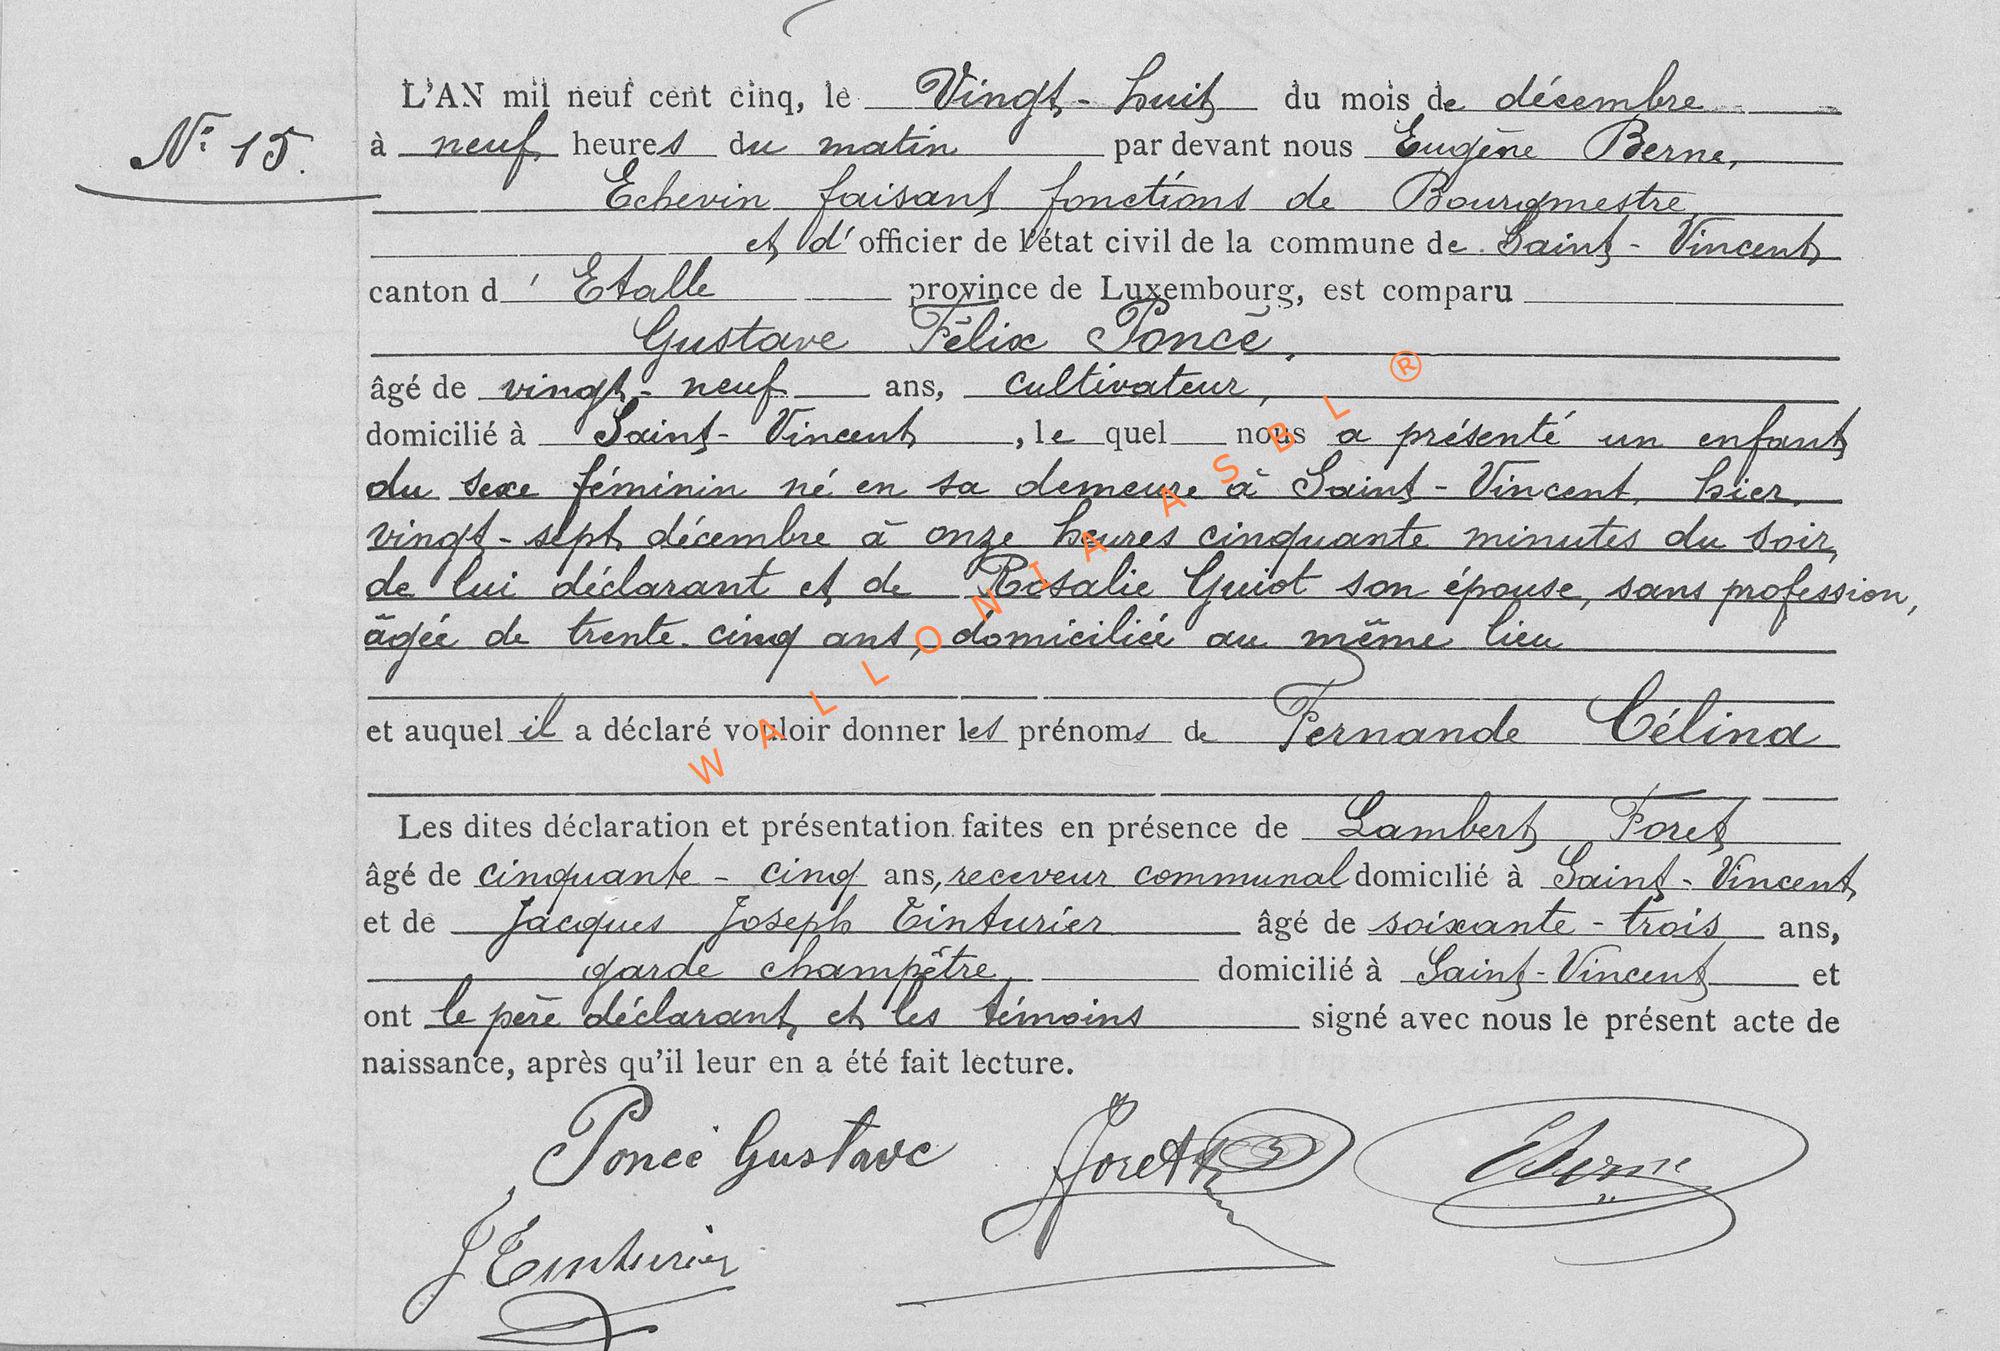 N° 15.
L'AN mil neuf cent cinq, le Vingt-huit du mois de décembre
à neuf heures du matin par devant nous Eugène Berne,
Echevin faisant fonctions de Bourgmestre
et d'officier de l'état civil de la commune de Saint-Vincent
canton d'Etalle province de Luxembourg, est comparu
Gustave Félix Poncé,
âgé de vingt-neuf ans, cultivateur,
domicilié à Saint-Vincent, le quel nous a présenté un enfant
du sexe féminin né en sa demeure à Saint-Vincent, hier,
vingt-sept décembre à onze heures cinquante minutes du soir,
de lui déclarant et de Rosalie Guiot son épouse, sans profession,
âgée de trente-cinq ans, domiciliée au même lieu
et auquel il a déclaré vouloir donner les prénoms de Fernande Célina
Les dites déclaration et présentation faites en présence de Lambert Foret
âgé de cinquante-cinq ans, receveur communal domicilié à Saint-Vincent
et de Jacques Joseph Tinturier âgé de soixante-trois ans,
garde champêtre domicilié à Saint-Vincent et
ont le père déclarant, et les témoins signé avec nous le présent acte de
naissance, après qu'il leur en a été fait lecture.
Poncé Gustave Foret EBerne
J Tinturier
WALLONIA ASBL ®